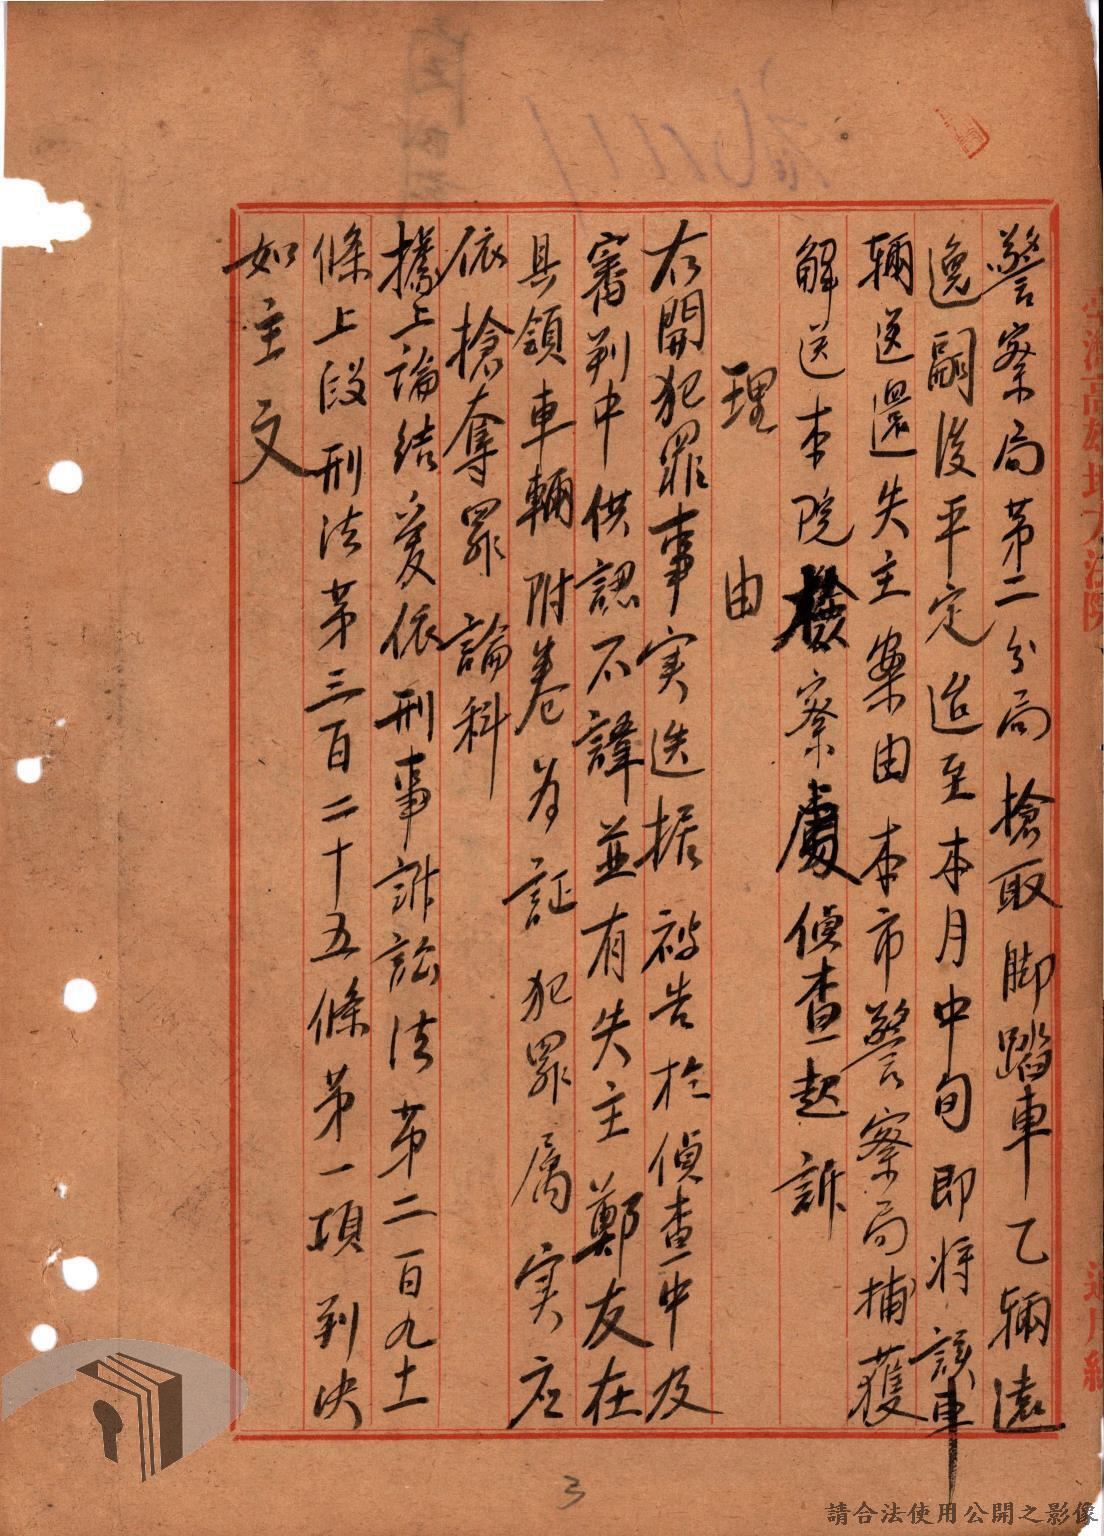 警察局第二分局搶取脚踏車乙輛遠
逸嗣後平定迨至本月中旬即將該車
輛送還失主案由本市警察局捕獲
解送本院檢察處偵查起訴
理由
右開犯罪事实迭据被告於偵查中及
審判中供認不諱並有失主鄭友在
具領車輛附卷为証犯罪属实应
依搶奪罪論科
據上論結爰依刑事訴訟法第二百九十
條上段刑法第三百二十五條第一項判决
如主文
3
請合法使用公開之影像